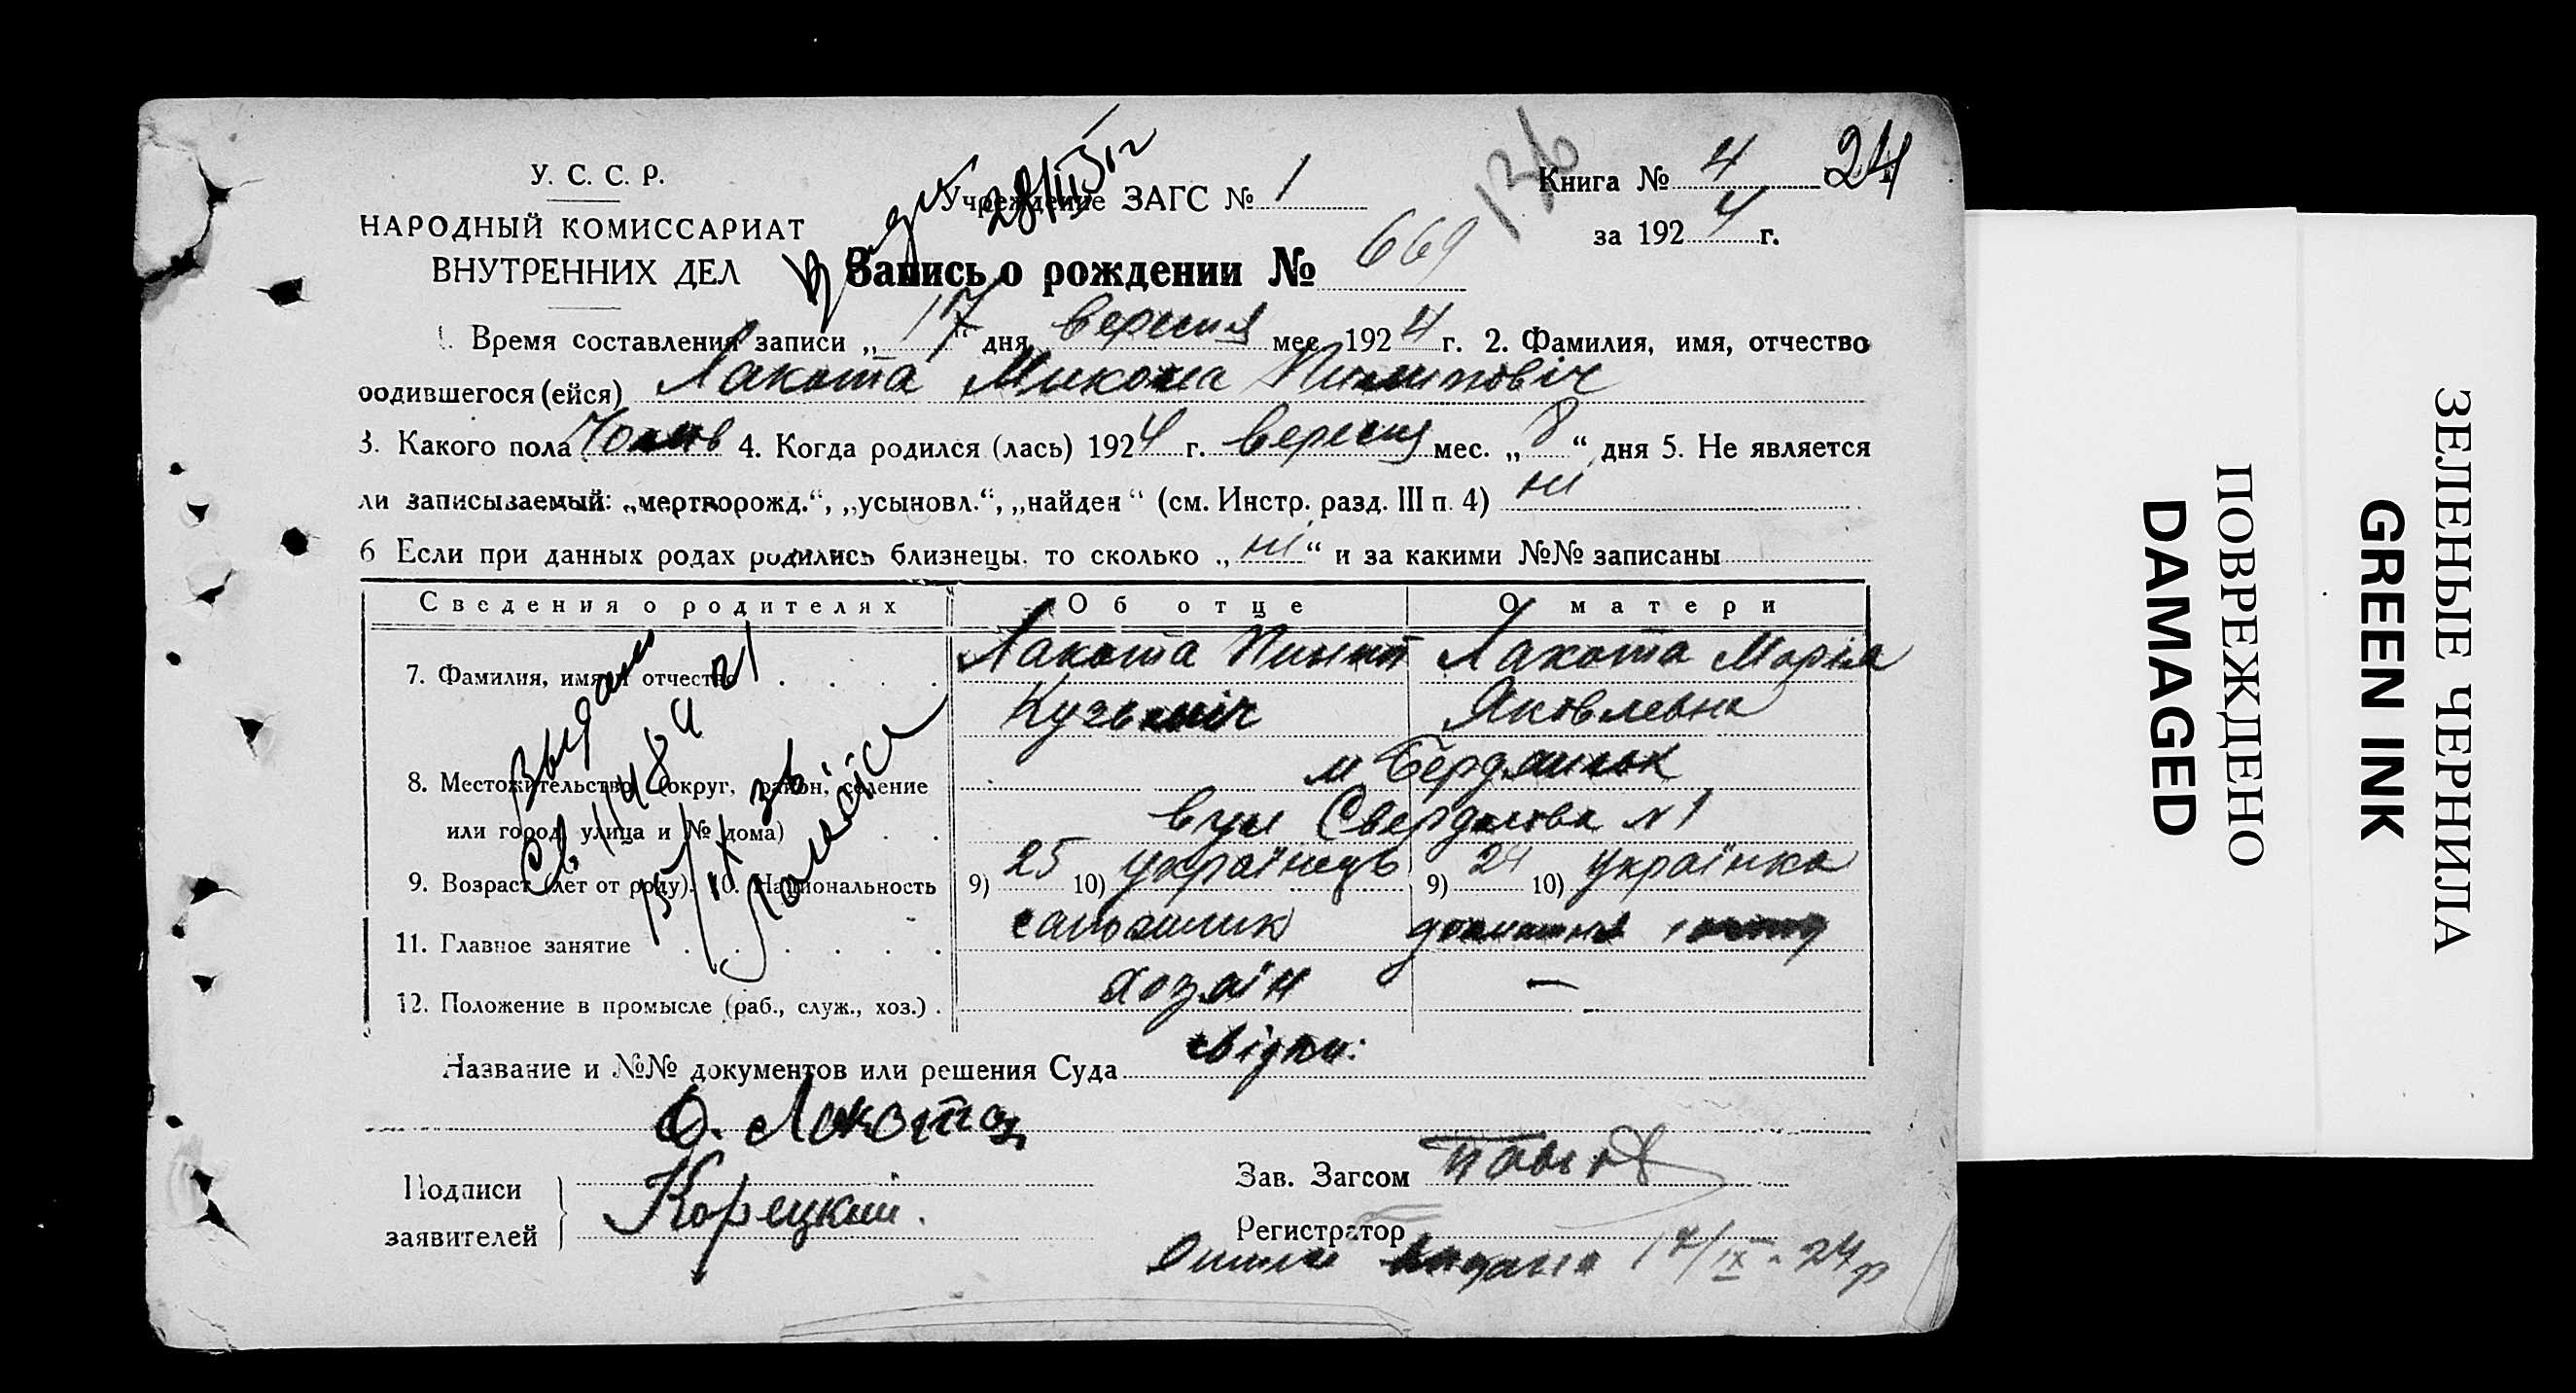 У. С. С. Р.
НАРОДНЫЙ КОМИССАРИАТ
ВНУТРЕННИХ ДЕЛ
Учреждение ЗАГС № 1
136
Книга № 4 24
за 1924 г.
Запись о рождении № 669
1. Время составления записи „17“ дня вересня мес. 1924 г. 2. Фамилия, имя, отчество
родившегося (ейся) Лакота Микола Пилиповіч
3. Какого пола Чолов 4. Когда родился (лась) 1924 г. вересня мес. „8“ дня 5. Не является
ли записываемый: „мертворожд.“, „усыновл.“, „найден“ (см. Инстр. разд. III п. 4) ні
6 Если при данных родах родились близнецы, то сколько „ні“ и за какими №№ записаны
Сведения о родителях Об отце О матери
7. Фамилия, имя и отчество Лакота Пилип Лакота Марія
Кузьміч Яковлевна
8. Местожительство (округ, район, селение м Бердянськ
или город, улица и № дома) вул Свердлова № 1
9. Возраст (лет от роду). 10. Национальность 9) 25 10) українець 9) 24 10) українка
11. Главное занятие домашня
12. Положение в промысле (раб., служ., хоз.) хозяін —
Название и №№ документов или решения Суда
Лакота
Подписи
заявителей
Корецкий.
Зав. Загсом
Регистратор
17/IX - 24 р
ЗЕЛЕНЫЕ ЧЕРНИЛА
GREEN INK
ПОВРЕЖДЕНО
DAMAGED